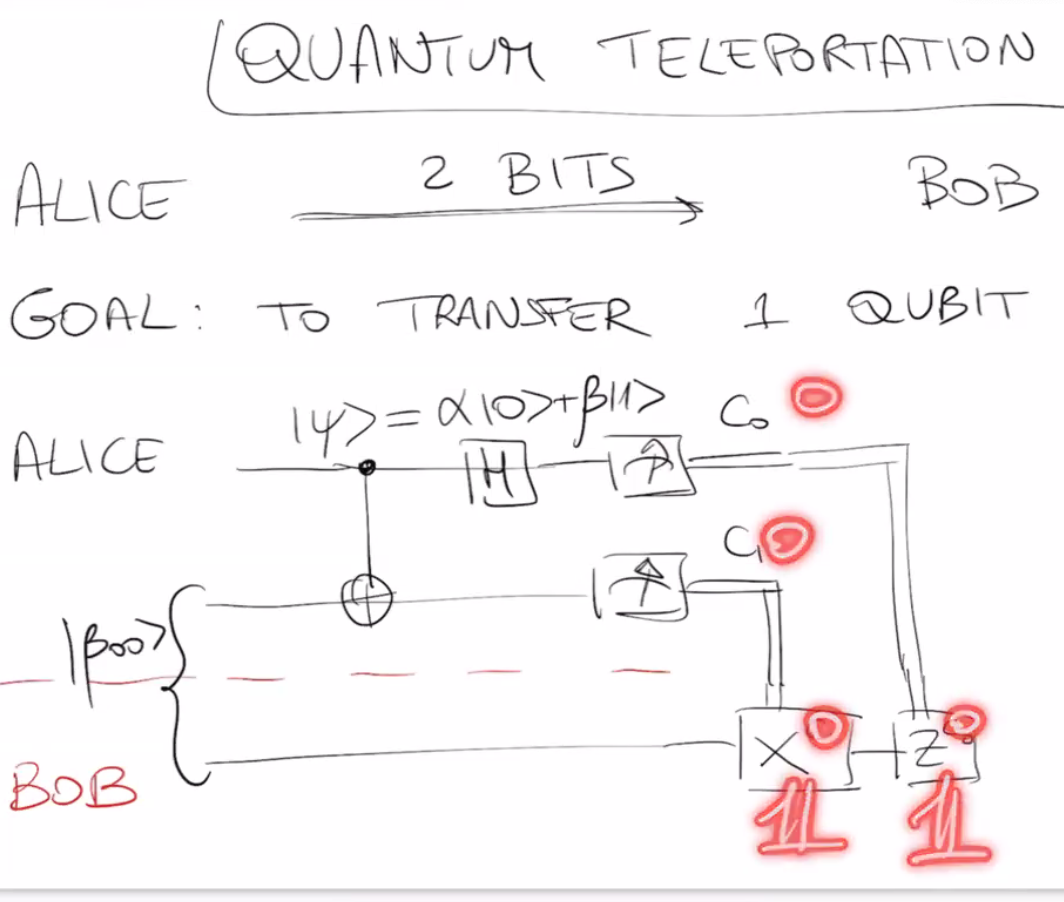 QUANTUM TELEPORTATION
ALICE 2 BITS BOB
GOAL: TO TRANSFER 1 QUBIT
|ψ> = α|0>+β|1> C₀ 0
ALICE H
C₁ 0
|β₀₀>
X⁰ Z⁰
BOB 𝟙 𝟙